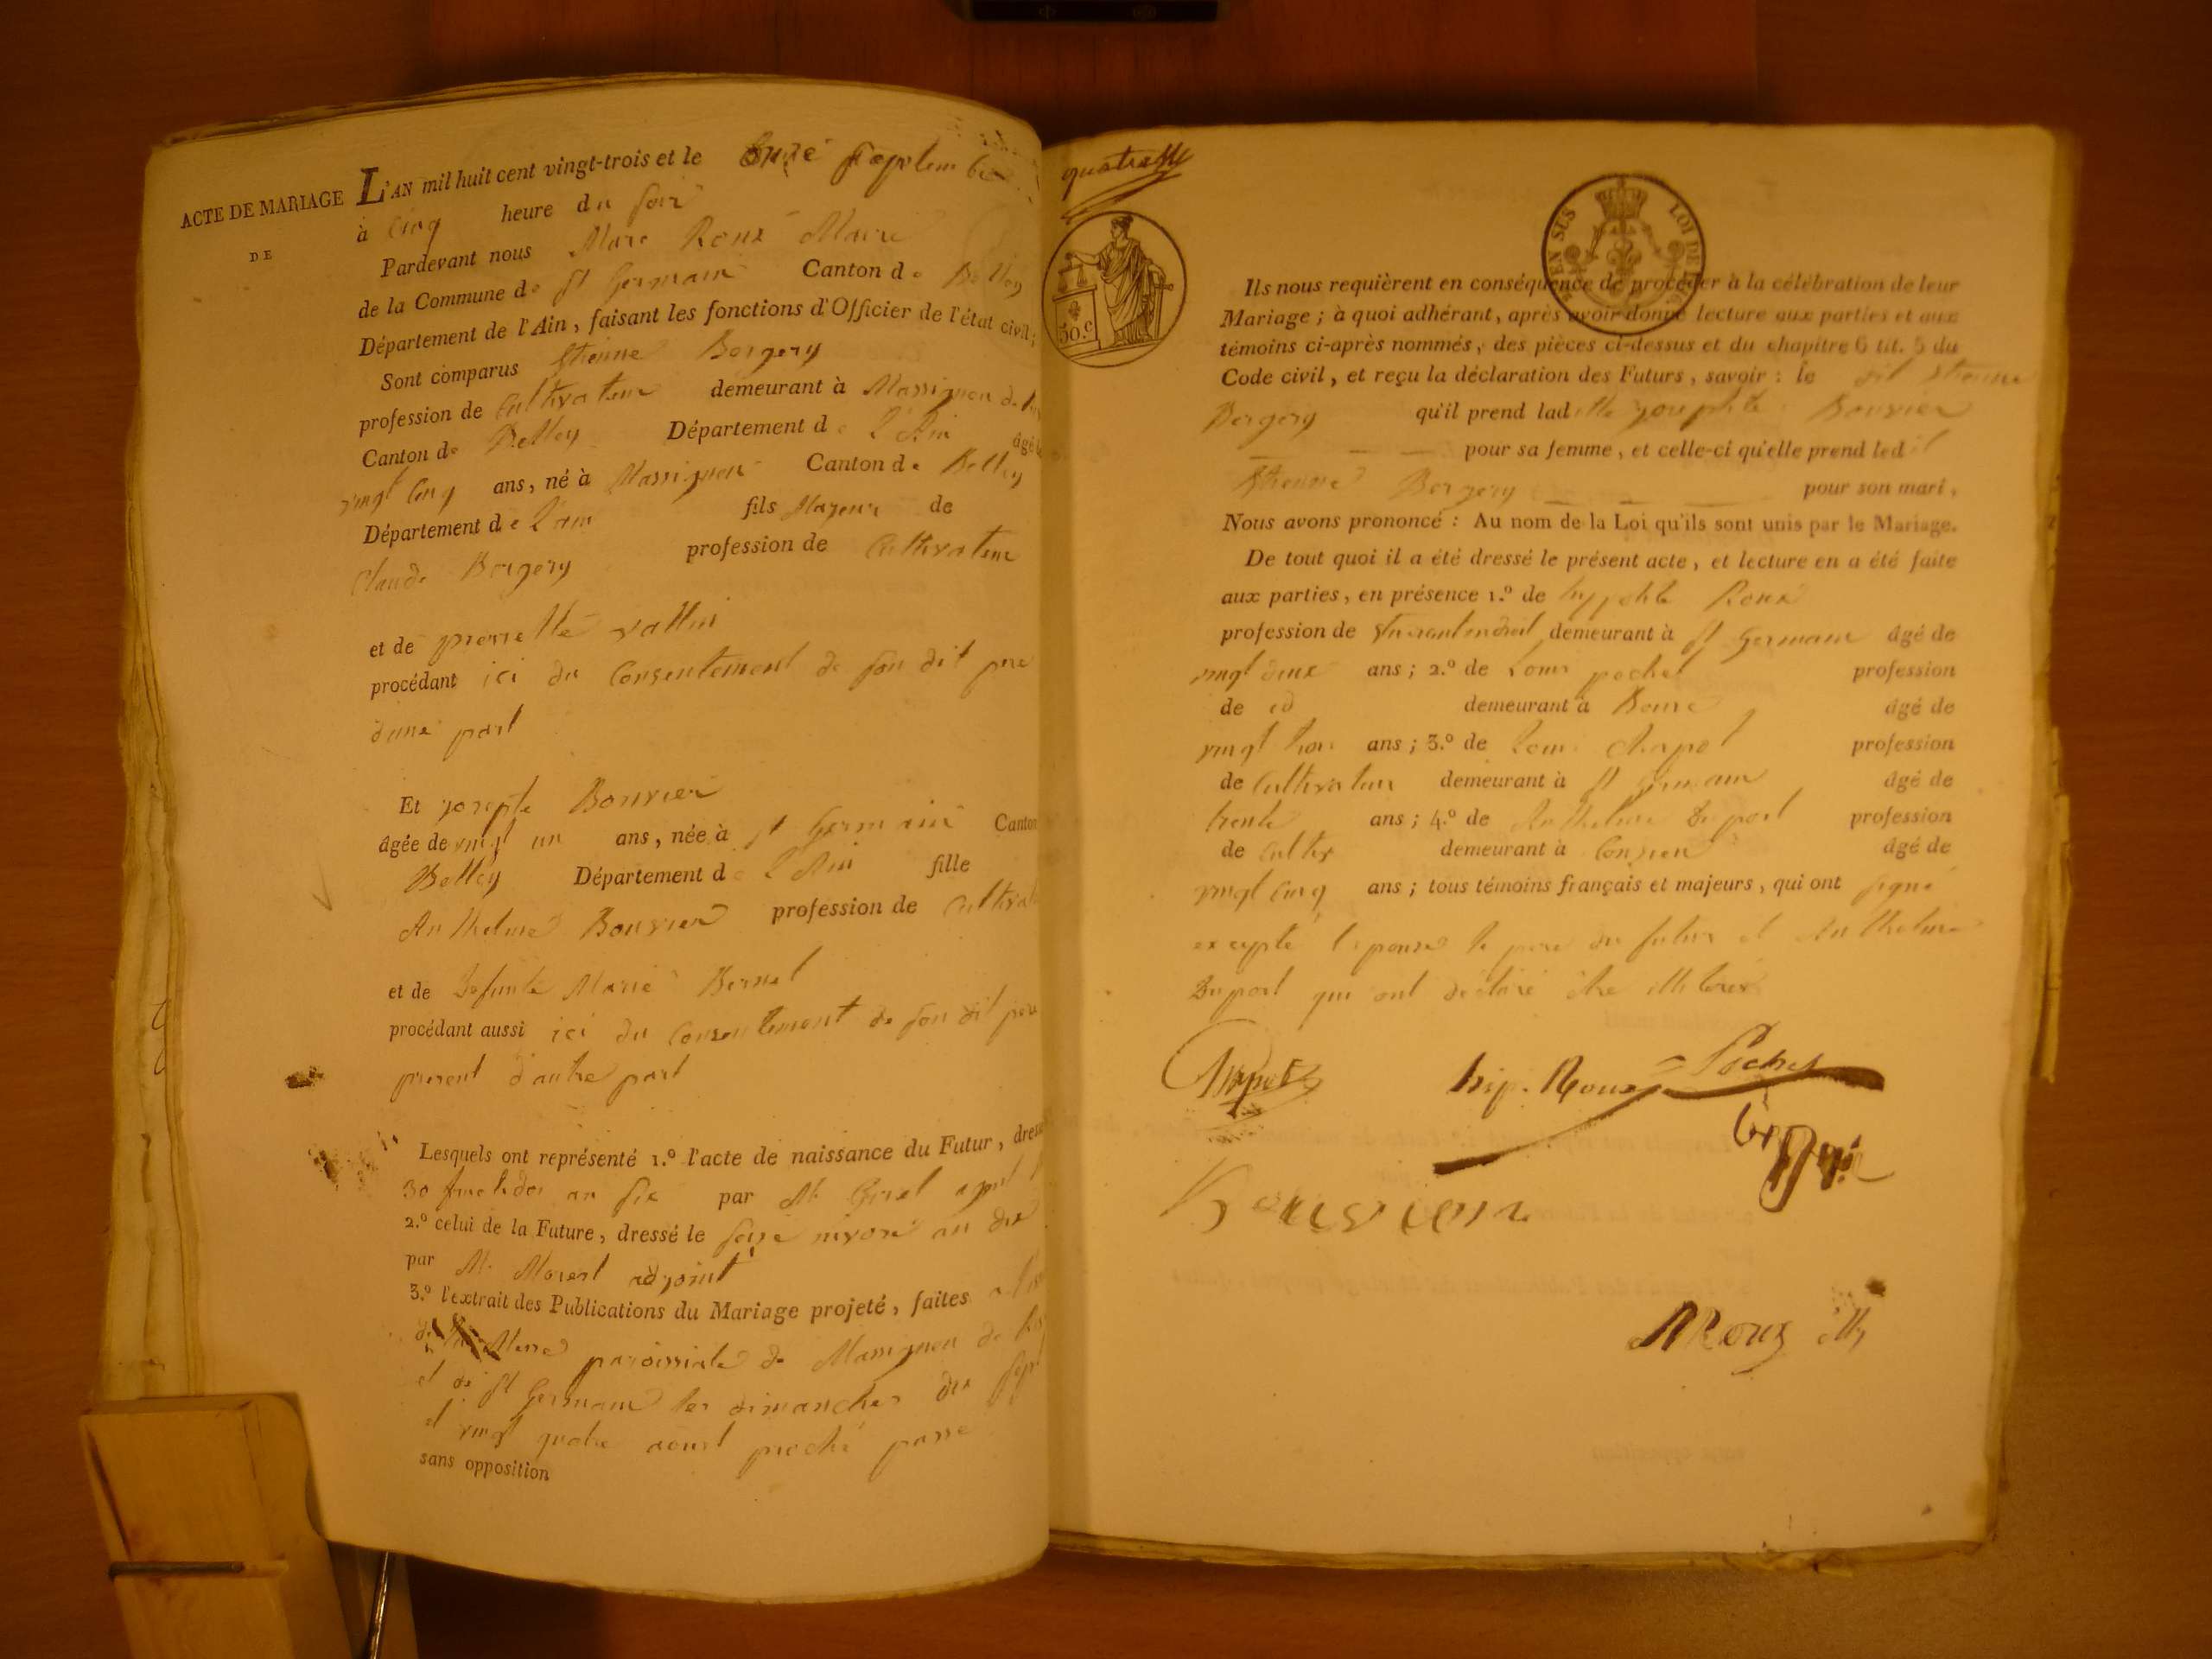 ACTE DE MARIAGE
DE
L'AN mil huit cent vingt-trois et le onze septembre
à cinq heure du soir
Pardevant nous Marc Roux Maire
de la Commune de st Germain Canton de Belley
Département de l'Ain, faisant les fonctions d'Officier de l'état civil;
Sont comparus Etienne Borgery
profession de Cultivateur demeurant à Massigneu de
Canton de Belley Département de L'Ain âgé
vingt cinq ans, né à Massigneu Canton de Belley
Département de L'ain fils Mageur de
Claude Borgery profession de Cultivateur
et de pierrette vallin
procédant ici du Consentement de son dit pere
d'une part
Et josepte Bouvier
âgée de vingt un ans, née à st Germain Canton
Belley Département de L'Ain fille
Anthelme Bouvier profession de
et de Defunte Marie Bernet
procédant aussi ici du Consentement de son dit pere
present d'autre part
Lesquels ont représenté 1.º l'acte de naissance du Futur,
30 fructidor an six par M.
2.º celui de la Future, dressé le seize nivose an dix
par M. Morest adjoint
3.º l'extrait des Publications du Mariage projeté, faites
Messe paroissiale de Massigneu de
et de st Germain les dimanches dix sept
et vingt quatre aoust proche passé
sans opposition
quatre
50.c
LOI DE
Ils nous requièrent en conséquence de procéder à la célébration de leur
Mariage; à quoi adhérant, après avoir donné lecture aux parties et aux
témoins ci-après nommés, des pièces ci-dessus et du chapitre 6 tit. 5 du
Code civil, et reçu la déclaration des Futurs, savoir: le dit Etienne
Borgery qu'il prend laditte josephte Bouvier
pour sa femme, et celle-ci qu'elle prend ledit
Etienne Borgery pour son mari,
Nous avons prononcé: Au nom de la Loi qu'ils sont unis par le Mariage.
De tout quoi il a été dressé le présent acte, et lecture en a été faite
aux parties, en présence 1.º de hyppolite Roux
profession de demeurant à st Germain âgé de
vingt deux ans; 2.º de Louis pochet profession
de id demeurant à âgé de
vingt trois ans; 3.º de Louis Chapot profession
de Cultivateur demeurant à st Germain âgé de
trente ans; 4.º de Anthelme Duport profession
de Cultivr demeurant à Conzieu âgé de
vingt cinq ans; tous témoins français et majeurs, qui ont signé
excepté l'epouse le pere du futur et Anthelme
Duport qui ont déclaré être illiterés
Chapot hip. Roux Pochet
Bouvier
MRoux